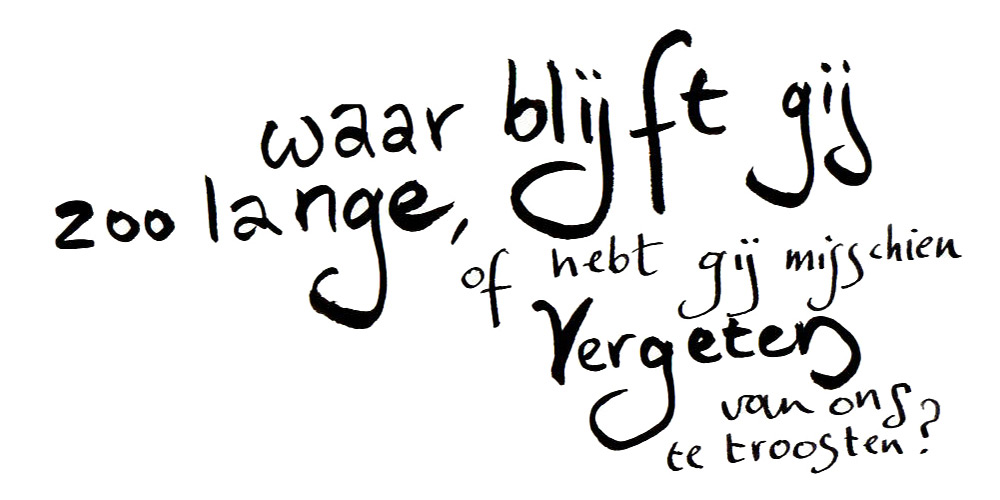 waar blijft gij
zoo lange,
of hebt gij misschien
vergeten
van ons
te troosten?